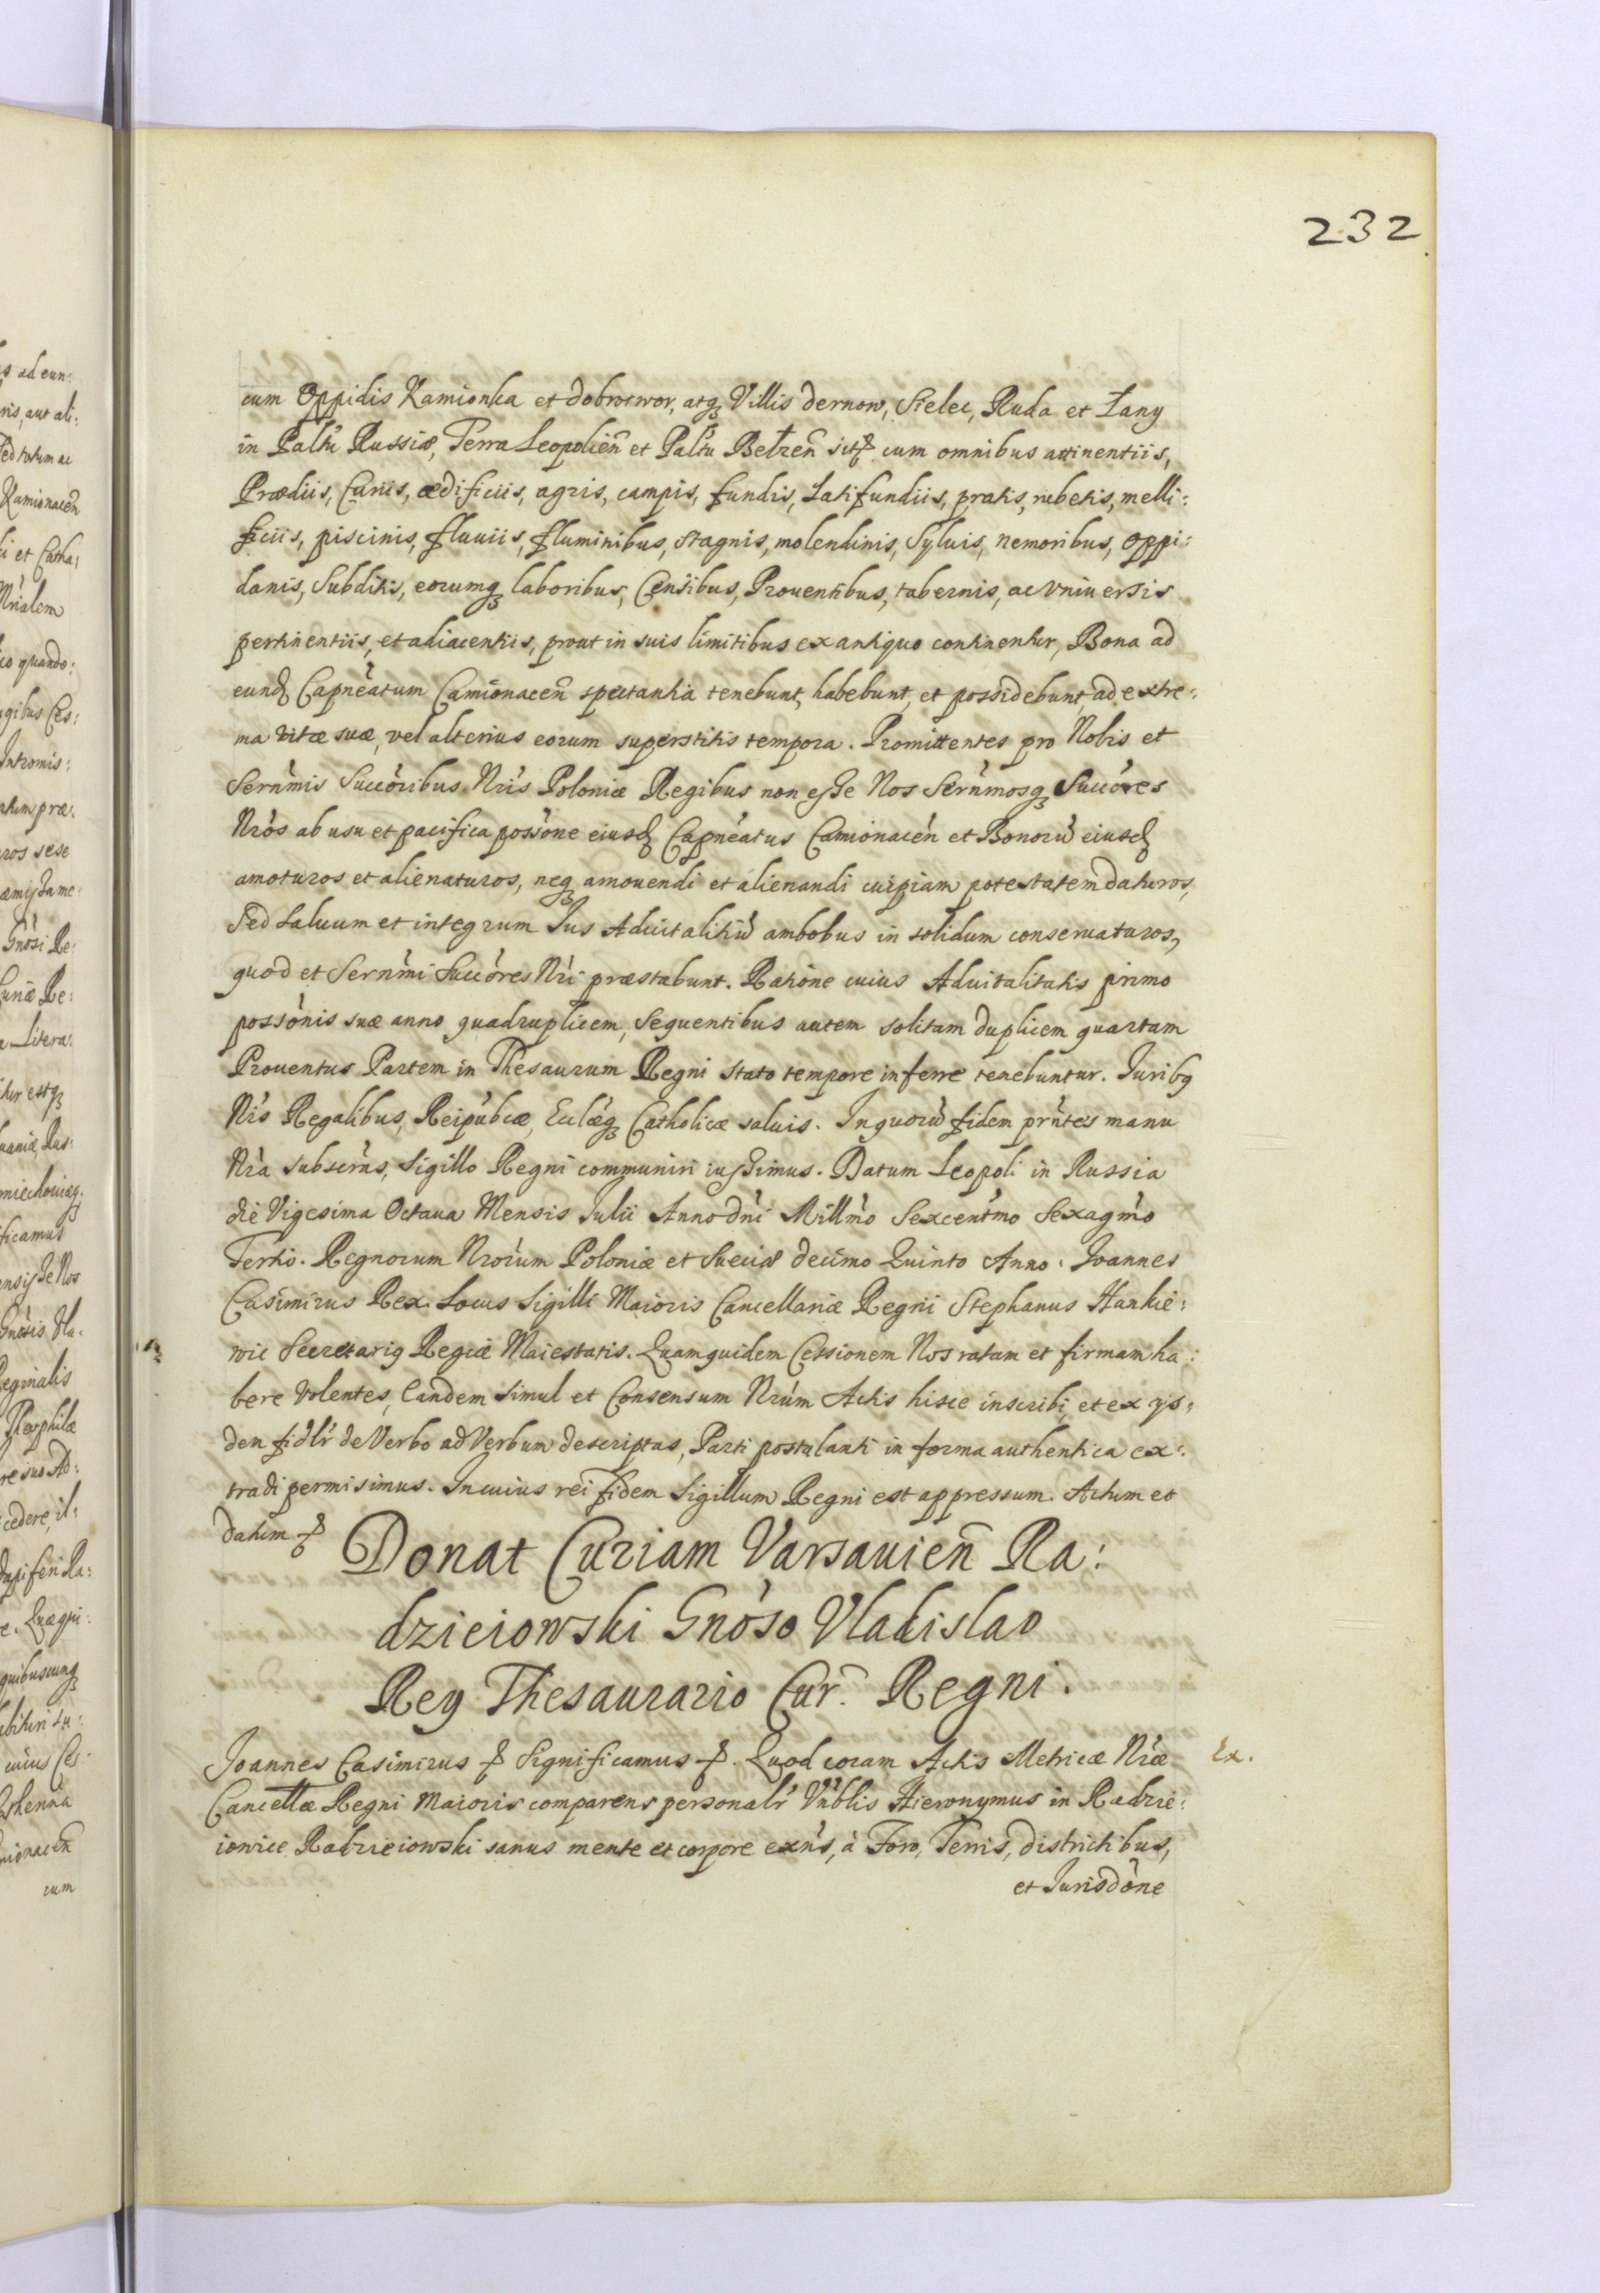 232
cum Oppidis Kamionka et dobrotwor, atq₃ Villis dernow, Sielec, Ruda et Łany
in Paltū Russiæ, Terra Leopolień et Paltu Bełzeñ sitꝭ cum omnibus attinentiis,
Prædiis, Curiis, ædificiis, agris, campis, fundis, Latifundiis, pratis, rubetis, melli:
ficiis, piscinis, fluuiis, fluminibus, stagnis, molendinis, Syluis, nemoribus, oppi:
danis, Subditis, eorumq₃ laboribus, Censibus, Prouentibus, tabernis, ac vniuersis
pertinentiis, et adiacentiis, prout in suis limitibus ex antiquo continentur, Bona ad
eund Capnèatum Camionaceñ spectantia tenebunt, habebunt, et possidebunt, ad extre:
ma vitæ suæ, vel alterius eorum superstitis tempora. Promittentes pro Nobis et
Sernm̀is Succòribus Nr̀is Poloniæ Regibus non esse Nos Sernm̀osq₃ Succòres
Nròs ab usu et pacifica possòne eiusd Capnèatus Camionaceǹ et Bonorū eiusd
amoturos et alienaturos, neq₃ amouendi et alienandi cuipiam potestatem daturos,
Sed saluum et integrum Jus Aduitalitiū ambobus in solidum conseruaturos,
quod et Sernm̀i Succòres Nr̀i præstabunt. Ratione cuius Aduitalitatis primo
possònis suæ anno quadruplicem, sequentibus autem solitam duplicem quartam
Prouentus Partem in Thesaurum Regni stato tempore inferre tenebuntur. Juribꝯ
Nr̀is Regalibus, Reipùbcæ, Ecclæq₃ Catholicæ saluis. In quorū fidem prǹtes manu
Nr̀a subscrǹs, sigillo Regni communiri iussimus. Datum Leopoli in Russia
die Vigesima Octaua Mensis Julii Anno dǹi Millm̀o Sexcentm̀o Sexagm̀o
Tertio. Regnorum Nròrum Poloniæ et Sueciæ decimo Quinto Anno. Joannes
Casimirus Rex. Locus Sigilli Maioris Cancellariæ Regni Stephanus Hankie:
wic Secretariꝯ Regiæ Maiestatis. Quamquidem Cessionem Nos ratam et firmam ha:
bere volentes, Eandem simul et Consensum Nrùm Actis hisce inscribi, et ex ijs:
dem fidlr̀ de Verbo ad Verbum descriptas, Parti postulanti in forma authentica ex:
tradi permisimus. In cuius rei fidem Sigillum Regni est appressum. Actum et
datum ꝭ
Donat Curiam Varsauień Ra:
dzieiowski Gnòso Vladislao
Rey Thesaurario Cur. Regni.
Joannes Casimirus ꝭ Significamus ꝭ. Quod coram Actis Metricæ Nr̀æ
Ex.
Cancellæ Regni Maioris comparens personalr̀ Vǹblis Hieronymus in Radzie:
iowice Radzieiowski sanus mente et corpore exǹs, à Foro, Terris, districtibus,
et Jurisdòne